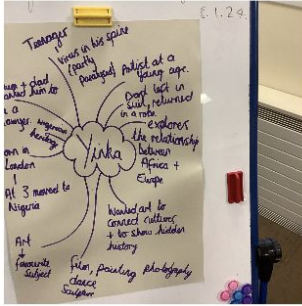 8.1.24.
Teenager
Virus in his spine
(partly
paralysed)
Artist at a
young age.
Dad left in
suit, returned
in a robe.
explores
the relationship
between
Africa +
Europe
Wanted art to
connect cultures
+ to show hidden
history
Film, painting photography
dance
Sculpture
Art
favourite
subject
At 3 moved to
Nigeria
orn in
London
Nigerian
heritage
+ dad
him to
a
Yinka